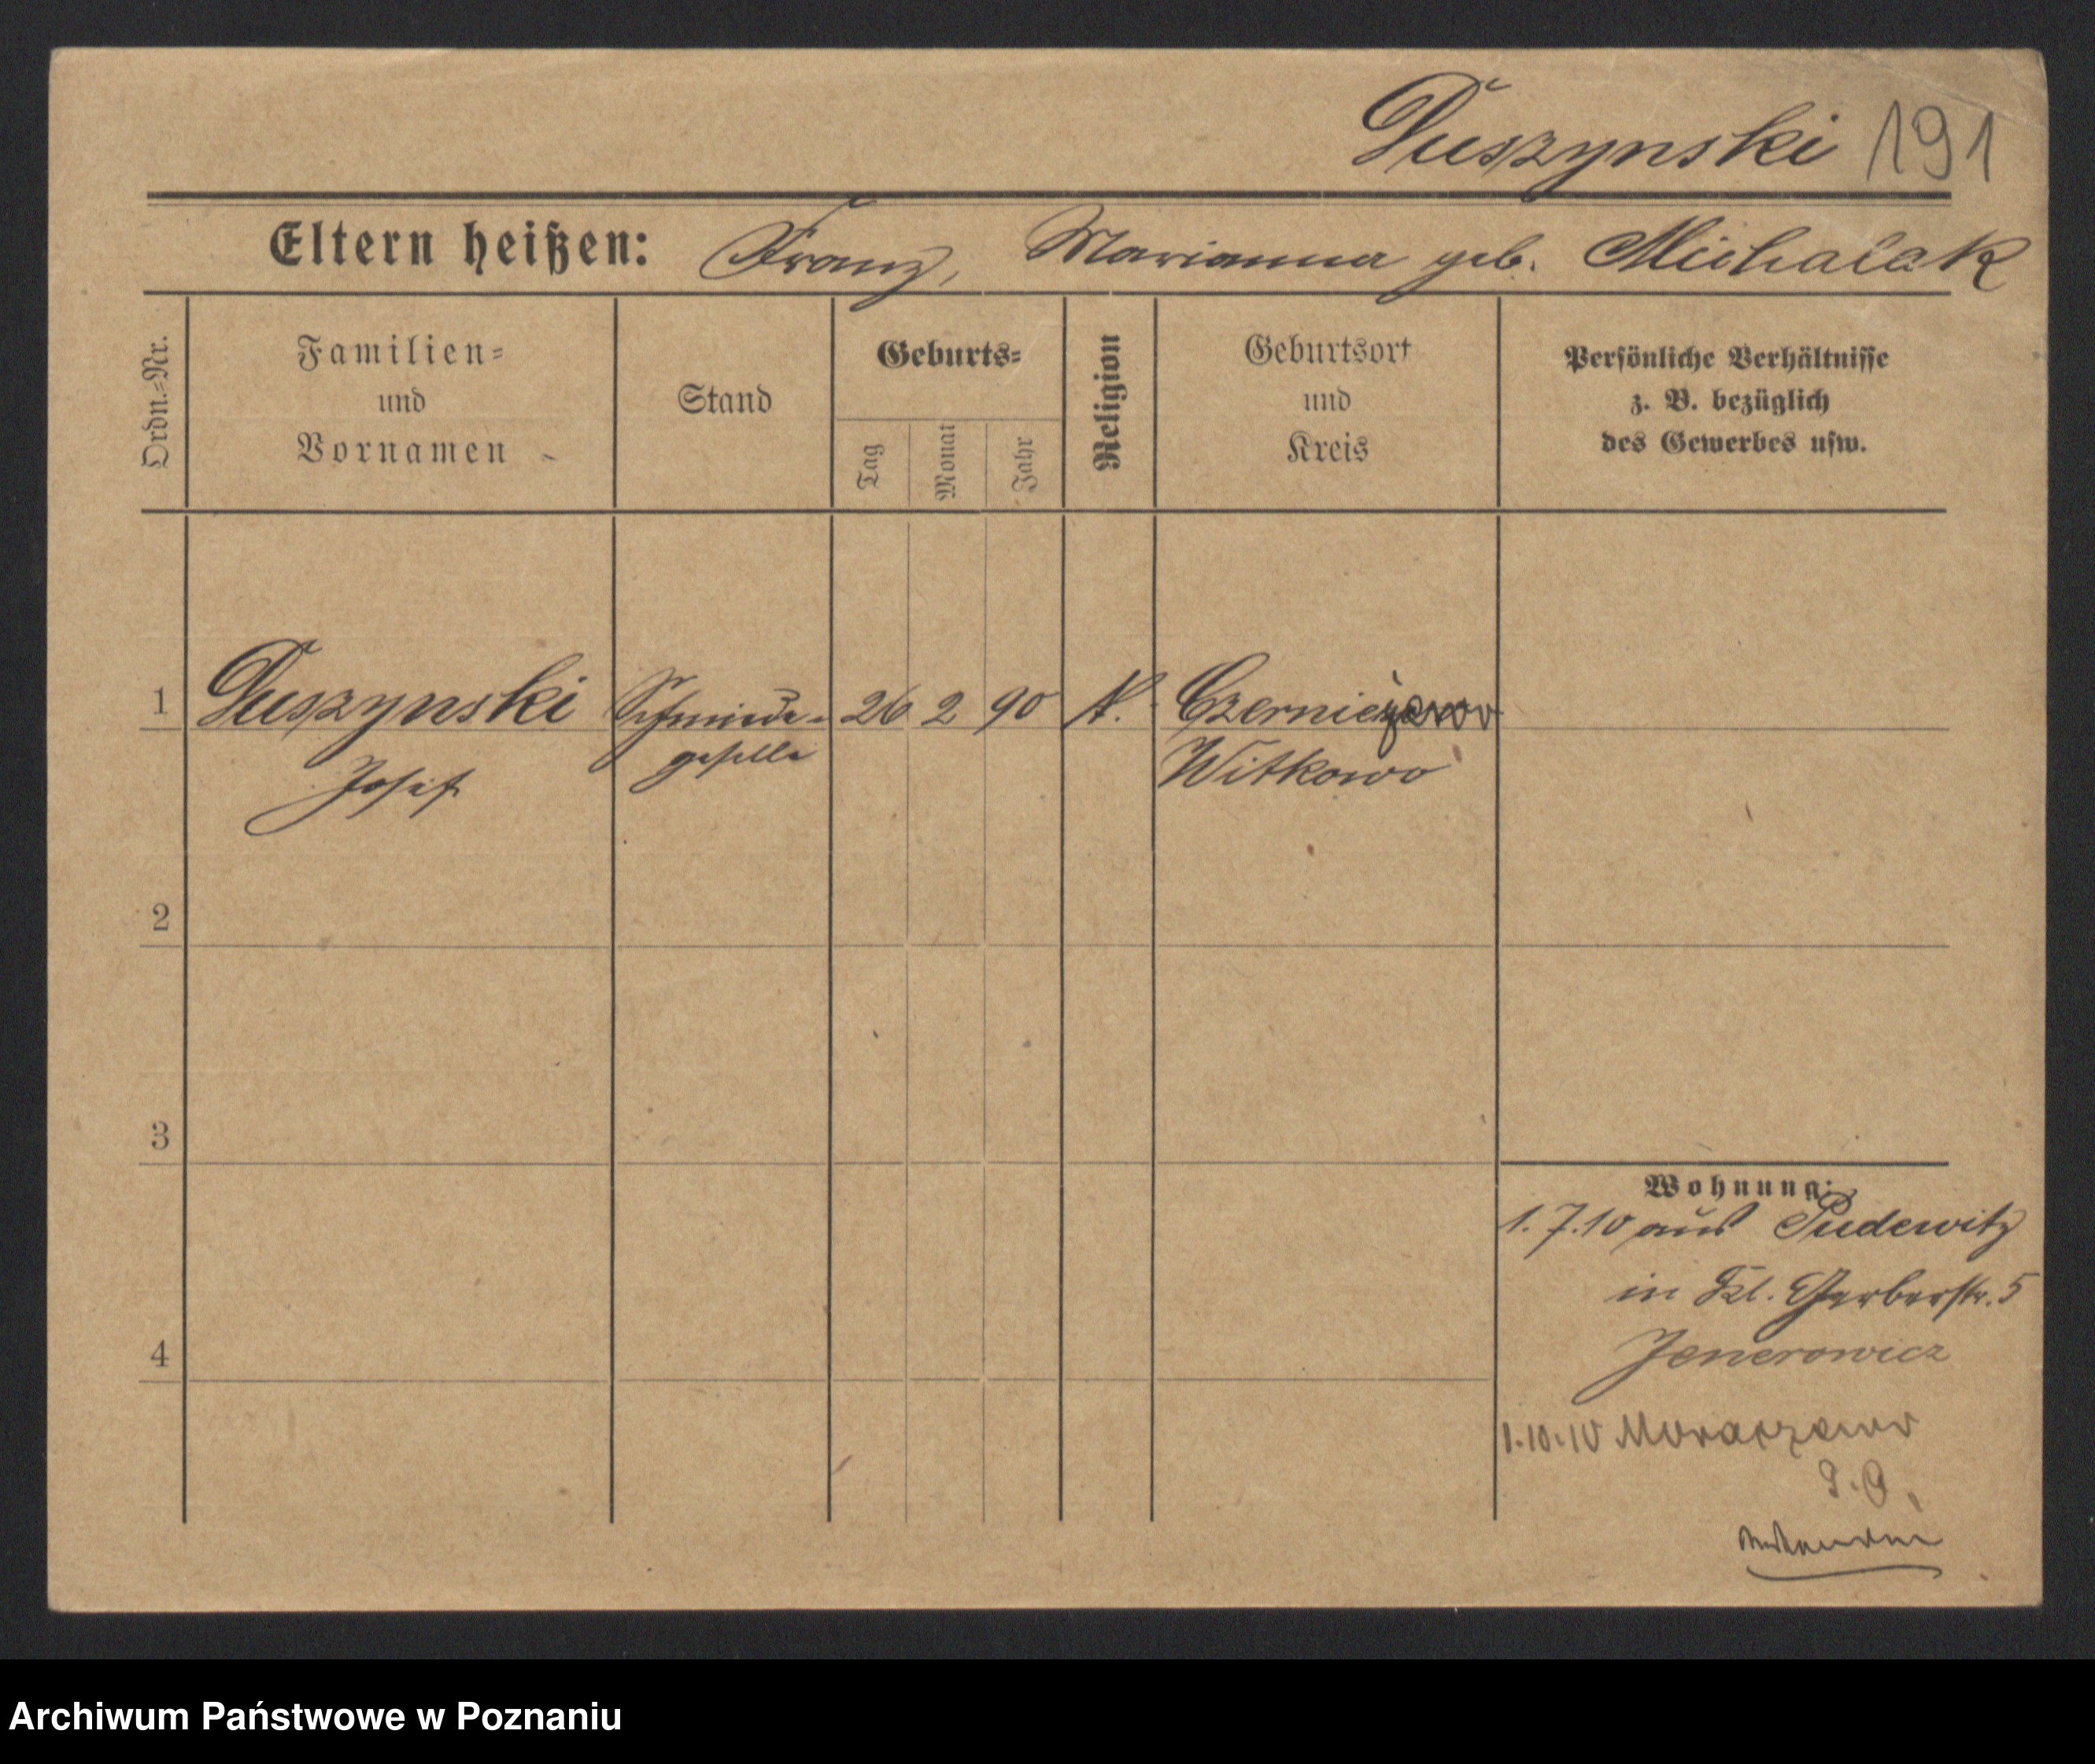 Duszynski 191
Eltern heißen: Franz, Marianna geb. Michalak
Ordn.-Nr.
Familien-
und
Vornamen
Stand
Geburts-
Tag
Monat
Jahr
Religion
Geburtsort
und
Kreis
Persönliche Verhältnisse
z. B. bezüglich
des Gewerbes usw.
1 Duszynski Schmiede- 26 2 90 K.
Josef geselle Witkowo
2
3
4
Wohnung:
1.7.10 aus Pudewitz
in Kl. Gerberstr. 5
Jenerowicz
1.10.10
Archiwum Państwowe w Poznaniu